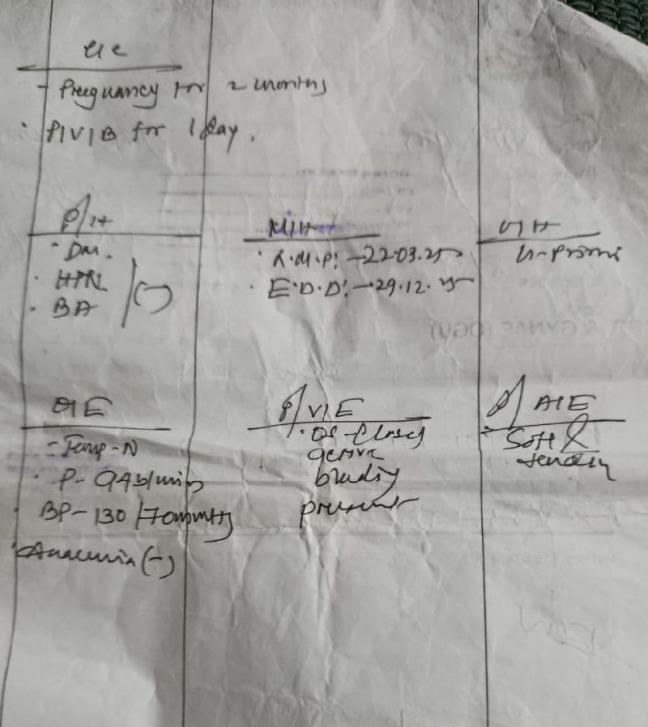 C/C
- Pregnancy for 2 months
· P/V/B for 1 day.
P/H
· DM.
· HTN
· BA
(-)
M/H
· L.M.P: -22.03.25
· E.D.D: -29.12.25
O/H
O/E
- Temp - N
· P- 94b/min
· BP- 130/70mmHg
· Anaemia (-)
P/V/E
· OS closed
active
bleeding
present
P/A/E
Soft &